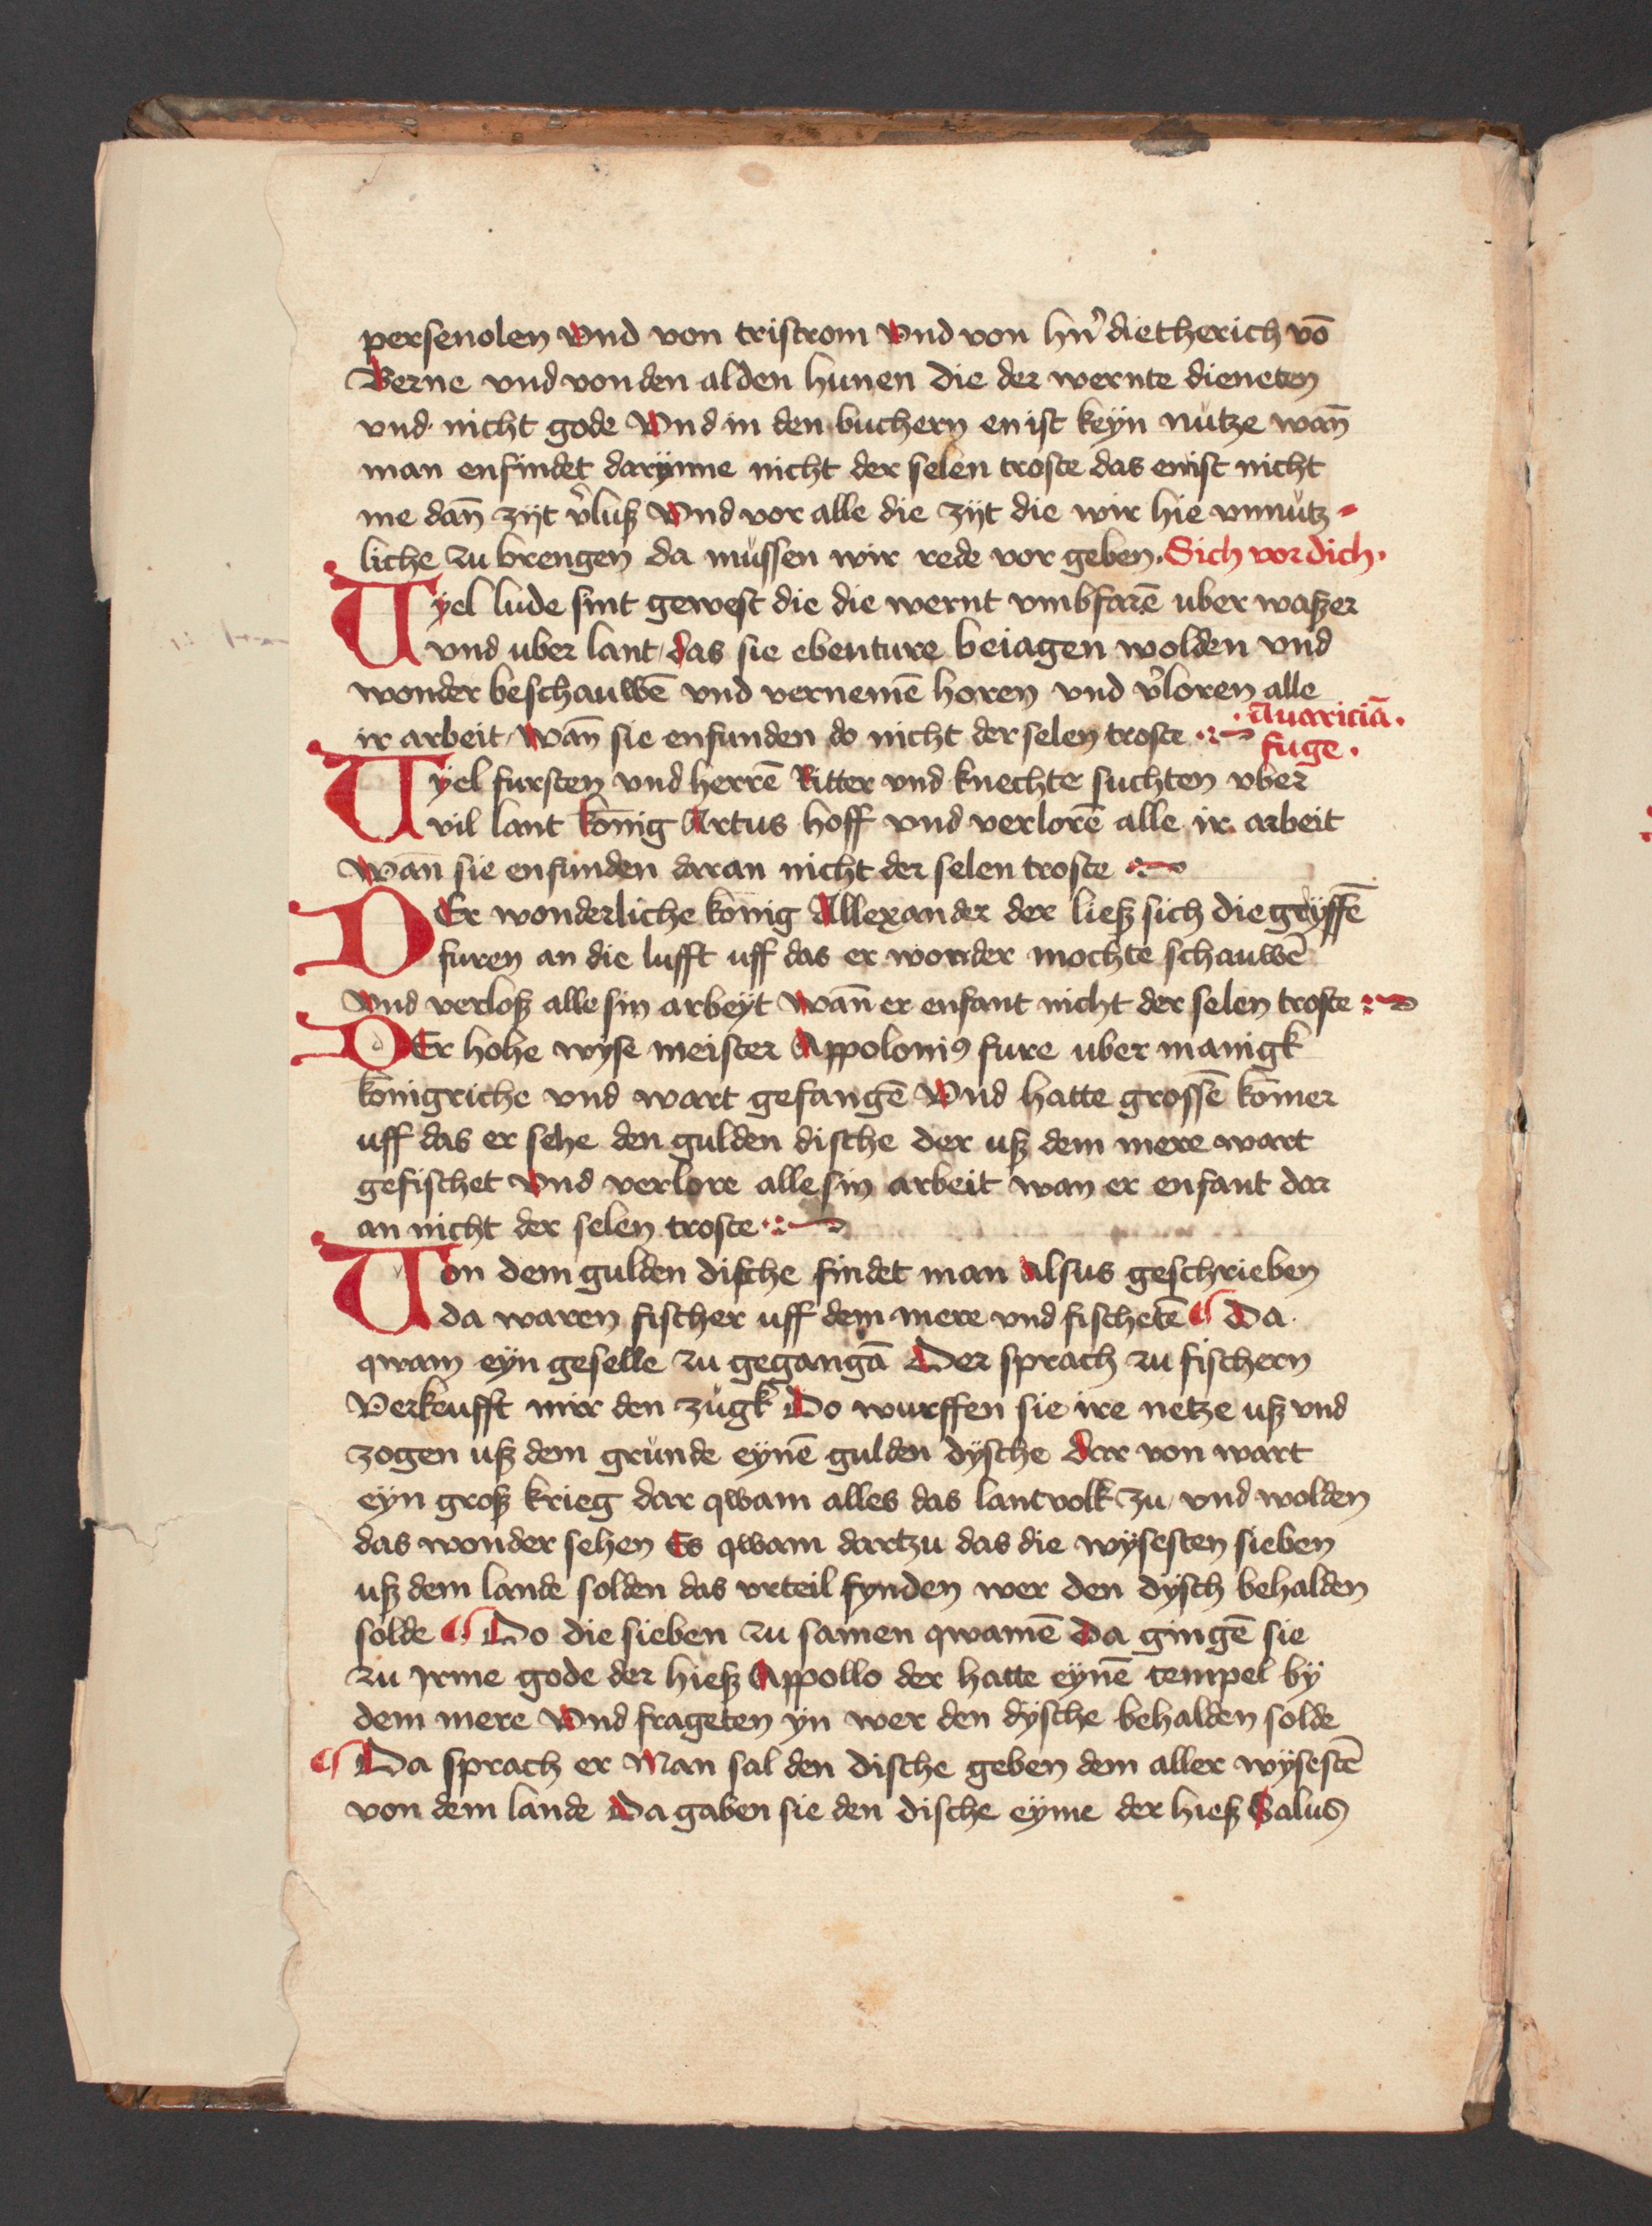 persenolen vnd von tristrom vnd von hn̓ dietherich vō
Berne vnd von den alden hunen die der wernte dieneten
vnd nicht gode Vnd in den buchern en ist keyn nutze wan̄
man enfindet darynne nicht der selen troste das enist nicht
me dan̄ zijt v̓luß Vnd vor alle die zijt die wir hie vnnutz-
liche zu brengen da mussen wir rede vor geben. Sich vor dich.
Vyel lude sint gewest die die wernt vmbfarē uber waßer
vnd uber lant das sie ebenture beiagen wolden vnd
wonder beschauwē vnd vernemē horen vnd v̓loren alle
ir arbeit Wan̄ sie enfunden do nicht der selen troste
·Auariciā·
fuge·
Vyel fursten vnd herrē Ritter vnd knechte suchten vber
vil lant konig Artus hoff vnd verlorē alle ir arbeit
Wan sie enfunden daran nicht der selen troste
DEr wonderliche konig Allexander der ließ sich die gryffē
furen an die lufft uff das er wonder mochte schauwē
Vnd verloß alle sin arbeyt Wan̄ er enfant nicht der selen troste
DEr hohe wyse meister Appoloniꝰ fure uber manigk
konigriche vnd wart gefangē Vnd hatte grossē komer
uff das er sehe den gulden dische der uß dem mere wart
gefischet Vnd verlore alle sin arbeit wan er enfant dar
an nicht der selen troste
Von dem gulden dische findet man Alsus geschrieben
da waren fischer uff dem mere vnd fischetē ¶ Da
qwam eyn geselle zu gegangā Der sprach zu fischern
Verkeufft mir den zugk Do wurffen sie ire netze uß vnd
zogen uß dem grunde eynē gulden dysche Dar von wart
eyn groß krieg dar qwam alles das lantvolk zu vnd wolden
das wonder sehen Es qwam dartzu das die wysesten sieben
uß dem lande solden das vrteil fynden wer den dysch behalden
solde ¶ Do die sieben zu samen qwamē Da gingē sie
zu Jrme gode der hieß Appollo der hatte eynē tempel by
dem mere Vnd frageten yn wer den dysche behalden solde
¶ Da sprach er Man sal den dische geben dem aller wysestē
von dem lande Da gaben sie den dische eyme der hieß Salus